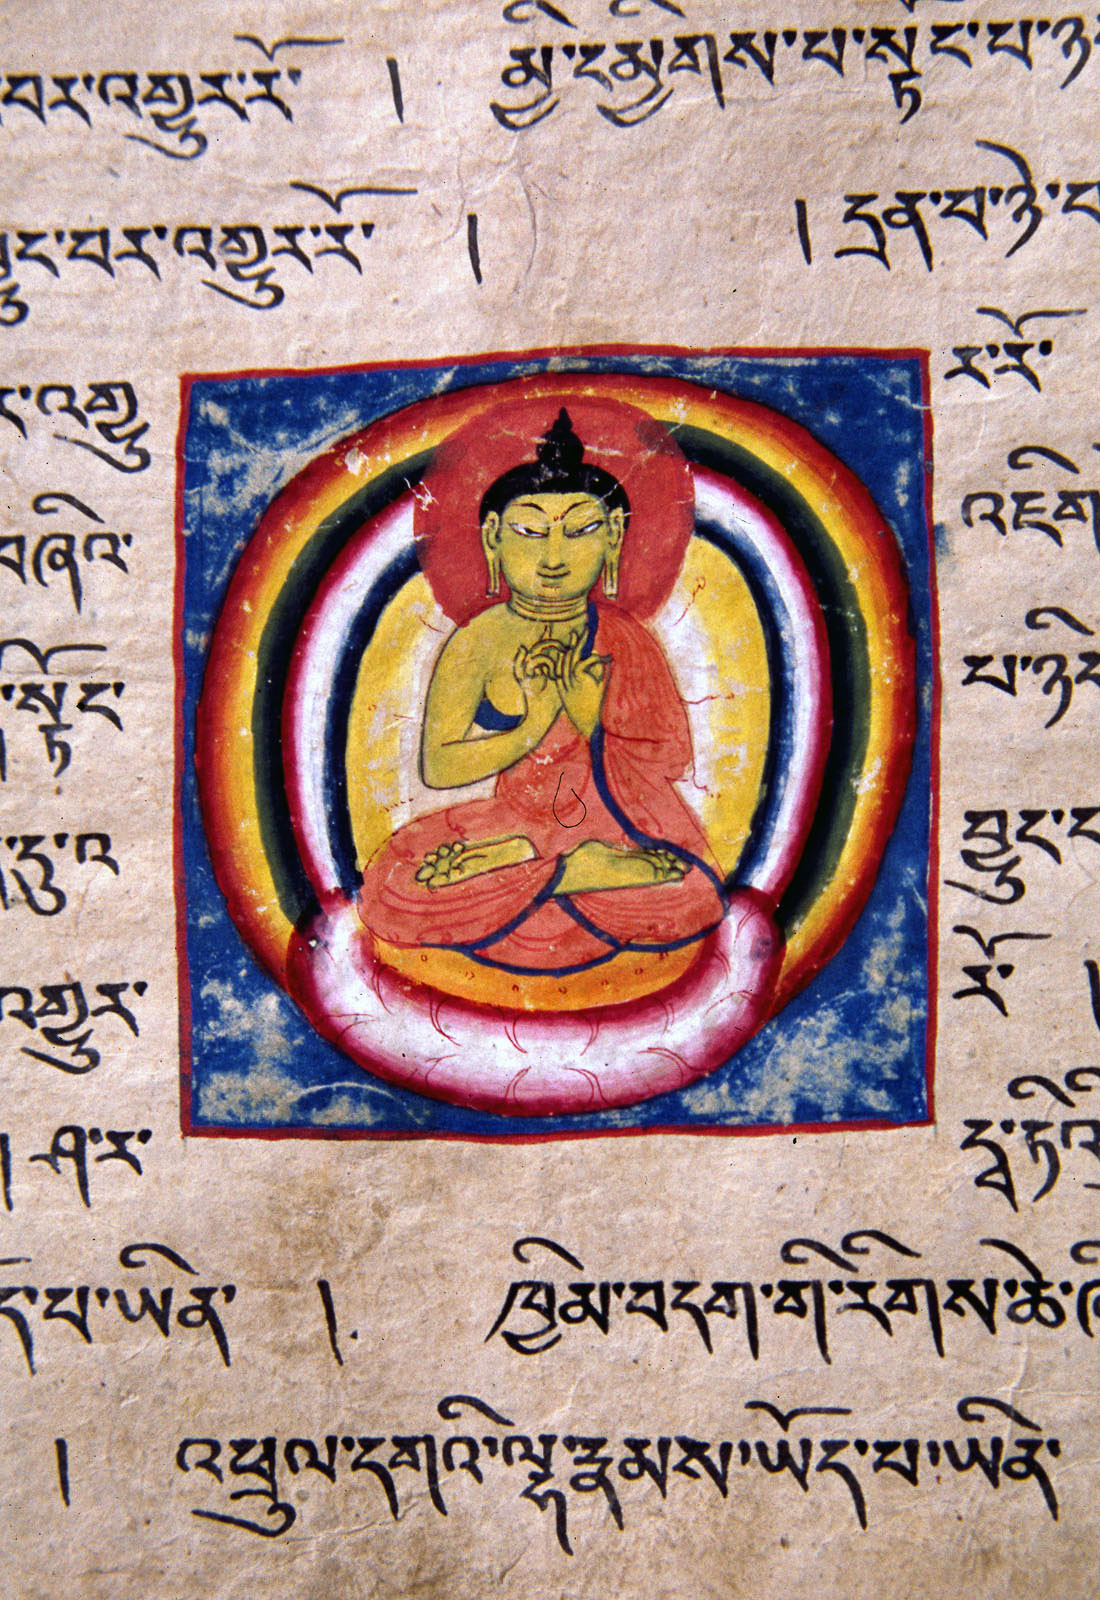 བར་འགྱུར་རོ་ ། མྱི་དམྱིགས་པ་སྟོང་པ་ཉི
བྱུང་བར་འགྱུར་རོ་ ། ། དྲན་པ་ཉེ་བ
ར་འགྱུ ར་རོ་
བཞིའི་ འཇིག
སྟོང་ པ་ཉིད
དུ་འ བྱུང་བ
འགྱུར་ རོ་ །
། ཤ་ར་ དྭ་ཏིའི
པ་ཡིན་ ། ཁྱིམ་བདག་གི་རིགས་ཆེ་ཞི
། འཕྲུལ་དགའི་ལྷ་རྣམས་ཡོད་པ་ཡིན་